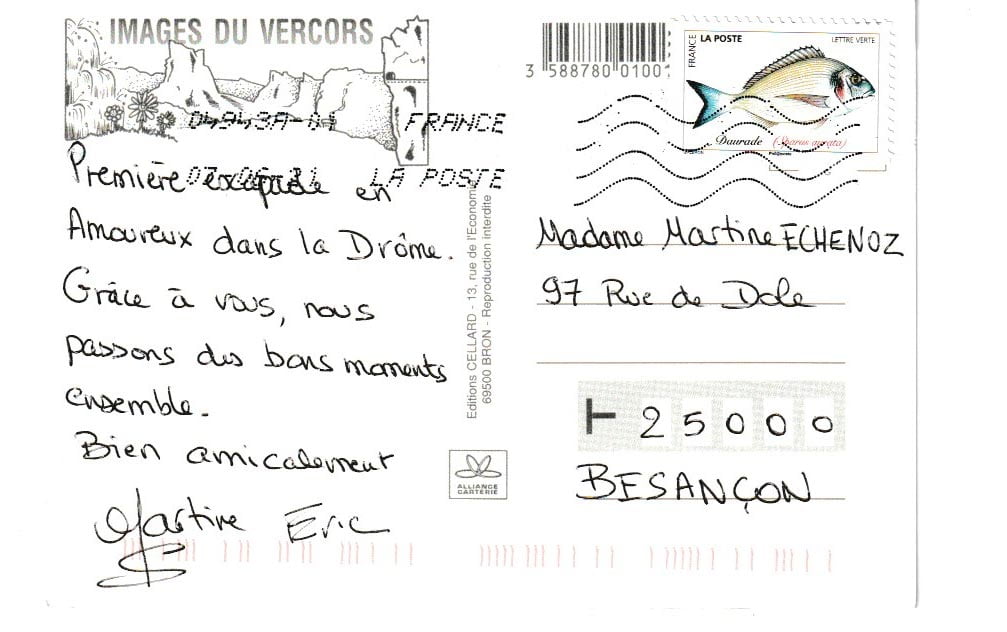 IMAGES DU VERCORS
3 588780 0100
FRANCE
LA POSTE
FRANCE
LA POSTE
LETTRE VERTE
Daurade (Sparus aurata)
Première escapade en
Amoureux dans la Drôme.
Grâce à vous, nous
passons des bons moments
ensemble.
Bien amicalement
Martine Eric
Editions CELLARD - 13, rue de l'Economie
69500 BRON - Reproduction Interdite
ALLIANCE
CARTERIE
Madame Martine ECHENOZ
97 Rue de Dole
25000
BESANÇON